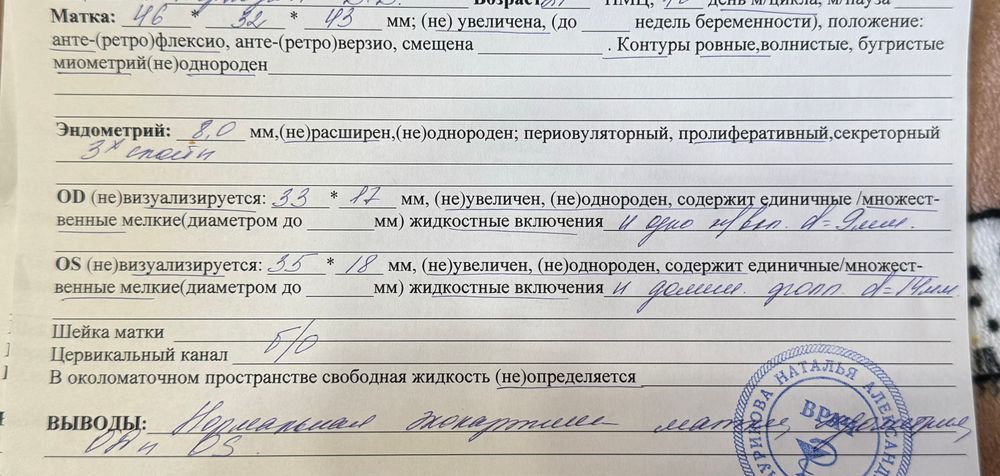 Возраст НМЦ, день м/цикла, м/пауза
Матка: 46 * 32 * 43 мм; (не) увеличена, (до недель беременности), положение:
анте-(ретро)флексио, анте-(ретро)верзио, смещена . Контуры ровные,волнистые, бугристые
миометрий(не)однороден
Эндометрий: 8,0 мм,(не)расширен,(не)однороден; периовуляторный, пролиферативный,секреторный
3х слойн
OD (не)визуализируется: 33 * 17 мм, (не)увеличен, (не)однороден, содержит единичные /множест-
венные мелкие(диаметром до мм) жидкостные включения и одно ж/вкл. d=9мм.
OS (не)визуализируется: 35 * 18 мм, (не)увеличен, (не)однороден, содержит единичные/множест-
венные мелкие(диаметром до мм) жидкостные включения и домин. фолл. d=14мм.
Шейка матки
б/о
Цервикальный канал
В околоматочном пространстве свободная жидкость (не)определяется
ВЫВОДЫ: Нормальная эхокартина матки, эндометрия,
OD и OS.
НАТАЛЬЯ
ВРАЧ